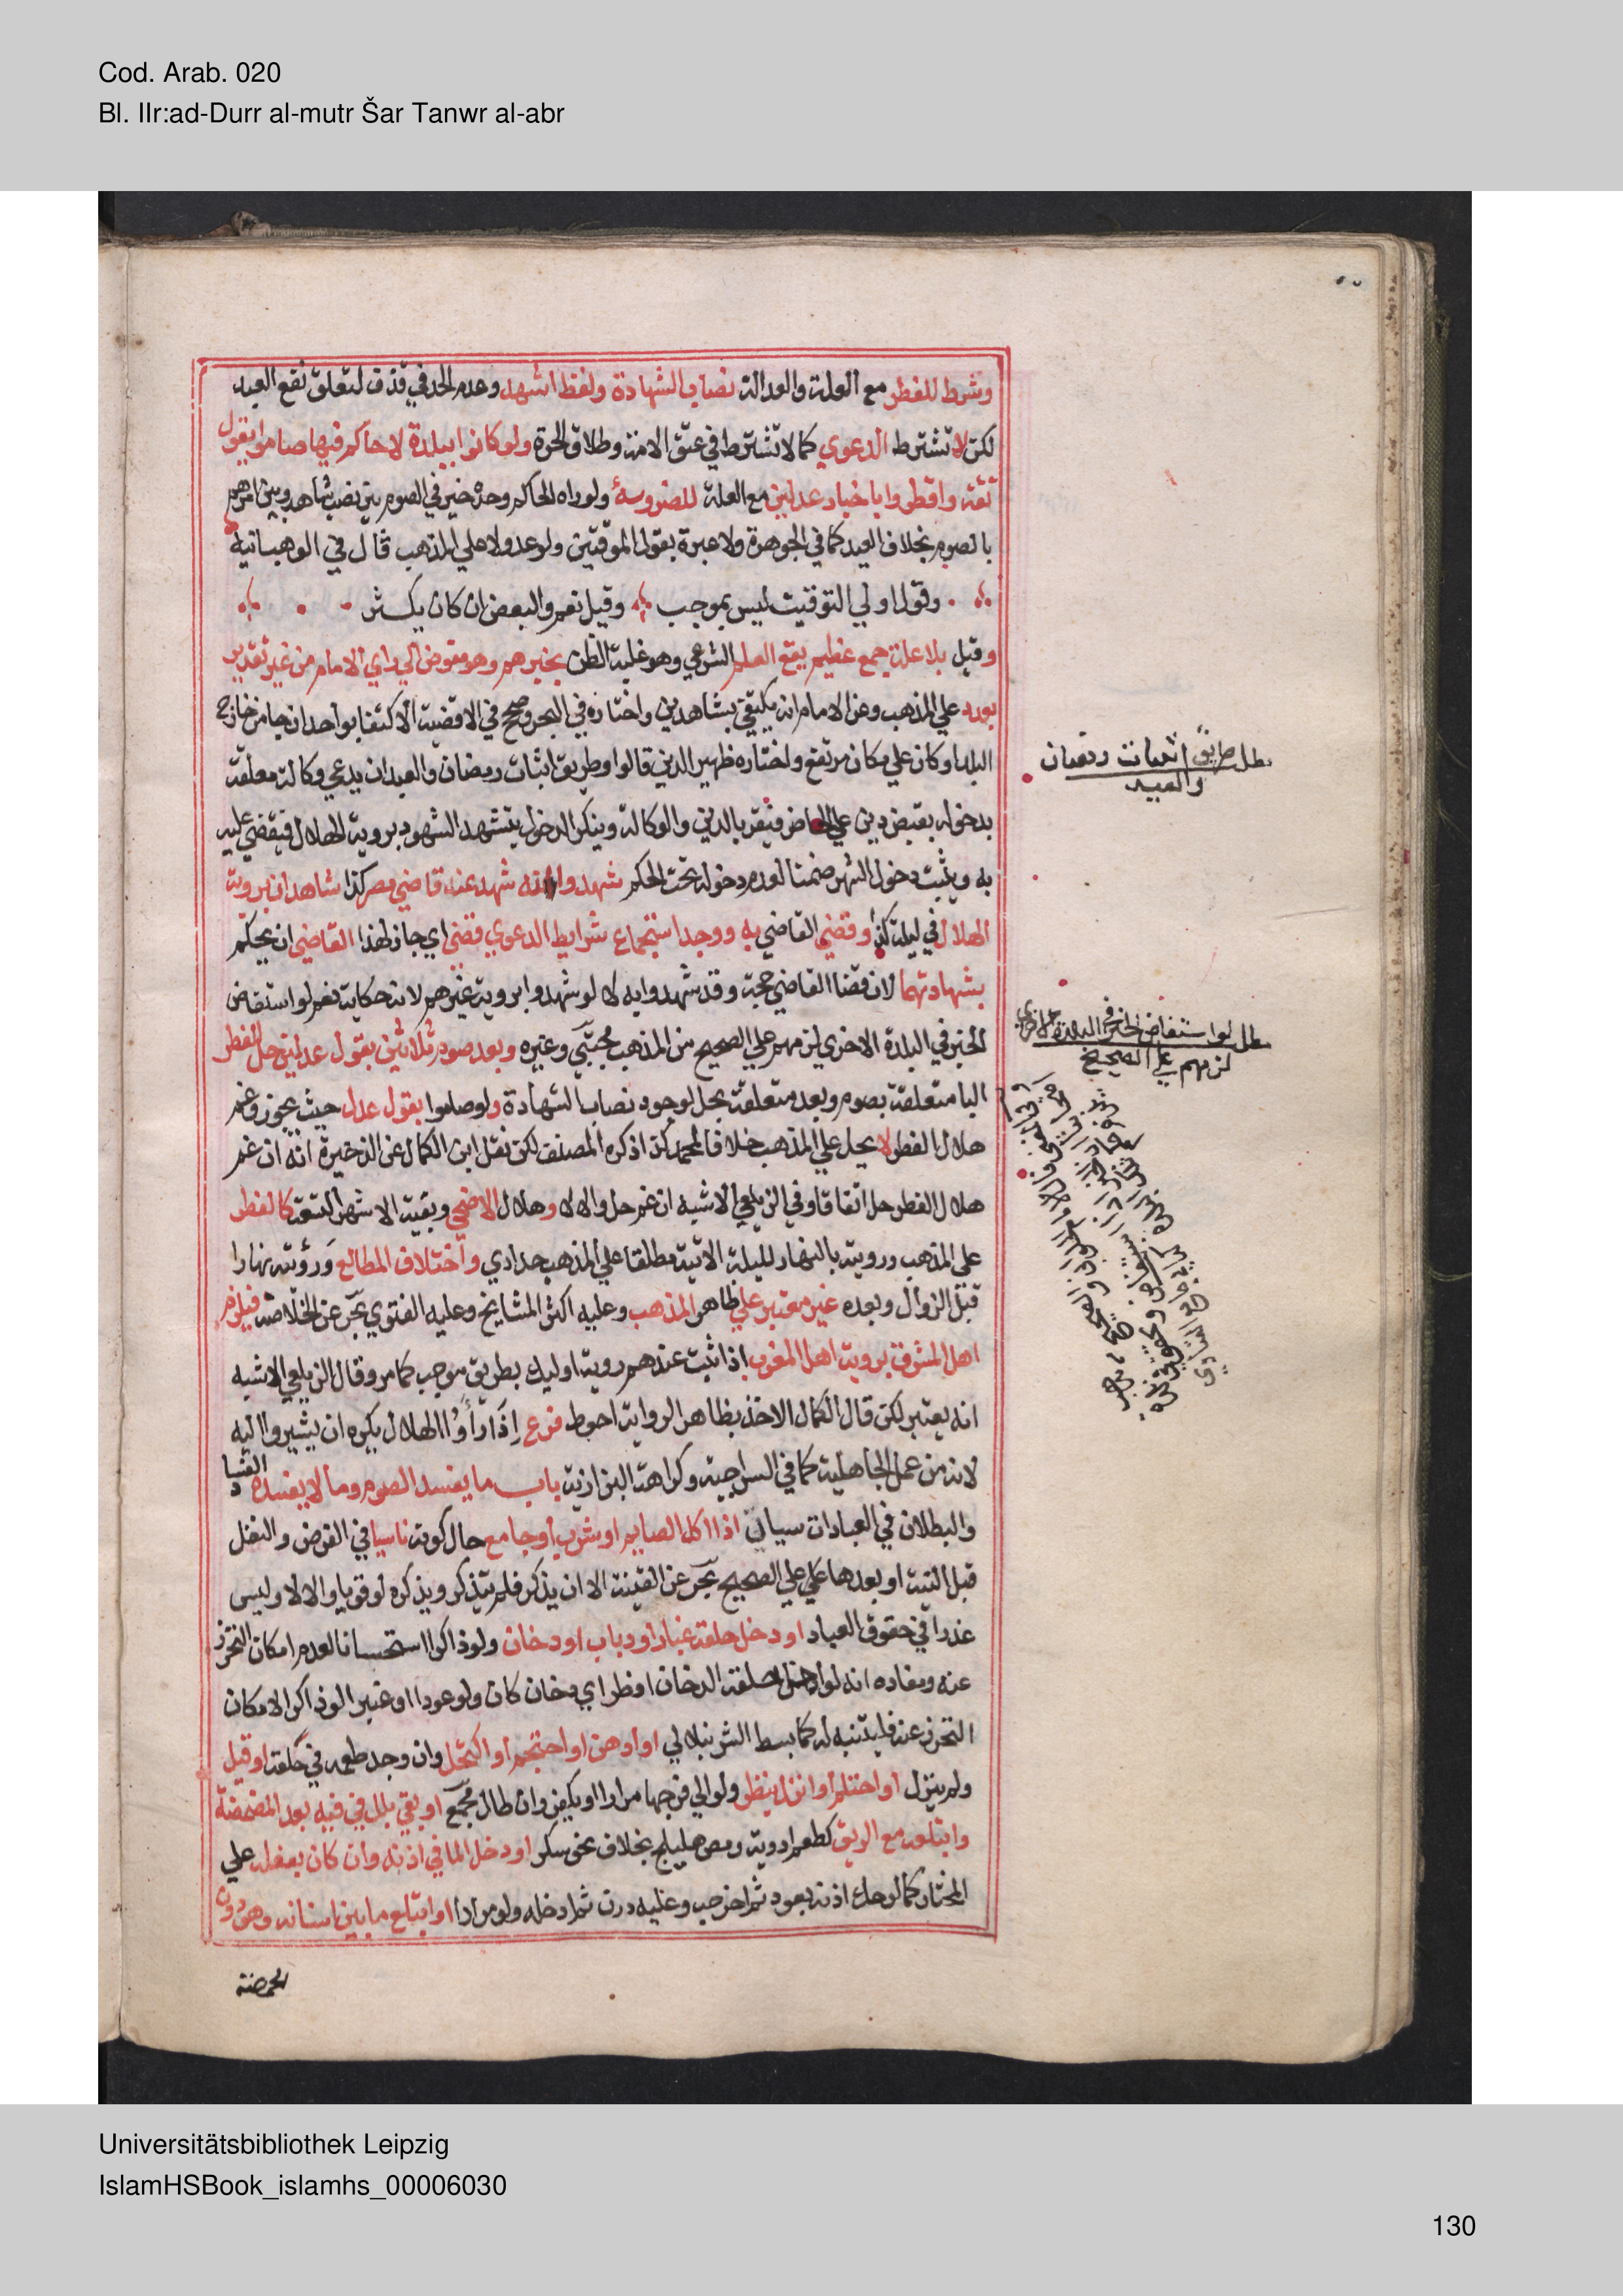 Cod. Arab. 020
Bl. IIr:ad-Durr al-mutr Šar Tanwr al-abr
وشرط للفطر مع العلة والعدالة نصاب الشهادة ولفظ اشهد وعدم الحد في قذف لتعلق نفع العبد
لكن لا تشترط الدعوي كما لا تشترط في عتق الامة وطلاق الحرة ولو كانوا ببلدة لا حاكم فيها صاموا بقول
ثقة وافطروا باخبار عدلين مع العلة للضرورة ولو راه الحاكم وحده خير في الصوم بين نصب شاهد وبين امرهم
بالصوم بخلاف العيد كما في الجوهرة ولا عبرة بقول الموقتين ولو عدولا علي المذهب قال في الوهبانية
وقول اولي التوقيت ليس بموجب وقيل نعم والبعض ان كان يكثر
وقبل بلا علة جمع عظيم يقع العلم الشرعي وهو غلبة الظن بخبرهم وهو مفوض الي راي الامام من غير تقدير
بعدد علي المذهب وعن الامام انه يكتفي بشاهدين واختاره في البحر وصحح في الاقضية الاكتفا بواحد ان جا من خارج
البلد او كان علي مكان مرتفع واختاره ظهير الدين قالوا وطريق اثبات رمضان والعيد ان يدعي وكالة معلقة
بدخوله بقبض دين علي الحاضر فيقر بالدين والوكالة وينكر الدخول فيشهد الشهود بروية الهلال فيقضي عليه
به ويثبت دخول الشهر ضمنا لعدم دخوله تحت الحكم شهدوا انه شهد عند قاضي مصر كذا شاهدان بروية
الهلال في ليلة كذا وقضي القاضي به ووجد استجماع شرايط الدعوي قضي اي جاز لهذا القاضي ان يحكم
بشهادتهما لان قضا القاضي حجة وقد شهدوا به لا لو شهدوا بروية غيرهم لانه حكاية نعم لو استفاض
الخبر في البلدة الاخري لزمهم علي الصحيح من المذهب مجتبي وغيره وبعد صوم ثلاثين بقول عدلين حل الفطر
البا متعلقة بصوم وبعد متعلقة بحل لوجود نصاب الشهادة ولو صاموا بقول عدل حيث يجوز وغم
هلال الفطر لا يحل علي المذهب خلافا لمحمد كذا ذكره المصنف لكن نقل ابن الكمال عن الذخيرة انه ان غم
هلال الفطر حل اتفاقا وفي الزيلعي الاشبه ان غم حل والا لا وهلال الاضحي وبقية الاشهر التسعة كالفطر
علي المذهب وروية بالنهار لليلة الاتية مطلقا علي المذهب حدادي واختلاف المطالع ورؤيته نهارا
قبل الزوال وبعده غير معتبر علي ظاهر المذهب وعليه اكثر المشايخ وعليه الفتوي بحر عن الخلاصة فيلزم
اهل المشرق بروية اهل المغرب اذا ثبت عندهم روية اوليك بطريق موجب كما مر وقال الزيلعي الاشبه
انه يعتبر لكن قال الكمال الاخذ بظاهر الرواية احوط فرع اذا رأوا الهلال يكره ان يشيروا اليه
لانه من عمل الجاهلية كما في السراجية وكراهة البزازية باب ما يفسد الصوم وما لا يفسده الفساد
والبطلان في العبادات سيان اذا اكل الصايم او شرب او جامع حال كونه ناسيا في الفرض والنفل
قبل النية او بعدها علي علي الصحيح بحر عن القنية الا ان يذكر فلم يتذكر ويذكره لو قويا والا لا وليس
عذرا في حقوق العباد او دخل حلقه غبار او ذباب او دخان ولو ذاكرا استحسانا لعدم امكان التحرز
عنه ومفاده انه لو ادخل حلقه الدخان افطر اي دخان كان ولو عودا او عنبرا لو ذاكرا لامكان
التحرز عنه فليتنبه له كما بسط الشرنبلالي او ادهن او احتجم او اكتحل وان وجد طعمه في حلقه او قبل
ولم ينزل او احتلم او انزل بنظر ولو الي فرجها مرارا او بفكر وان طال مجمع او بقي بلل في فيه بعد المضمضة
وابتلعه مع الريق كطعم ادوية ومص هليلج بخلاف نحو سكر او دخل الما في اذنه وان كان بفعله علي
المختار كما لو حك اذنه بعود ثم اخرجه وعليه درن ثم ادخله ولو مرارا او ابتلع ما بين اسنانه وهو دون
الحمصة
مطلب طريق اثبات رمضان
والعيد
مطلب لو استفاض الخبر في البلدة الاخري
لزمهم علي الصحيح
Universitätsbibliothek Leipzig
IslamHSBook_islamhs_00006030
130